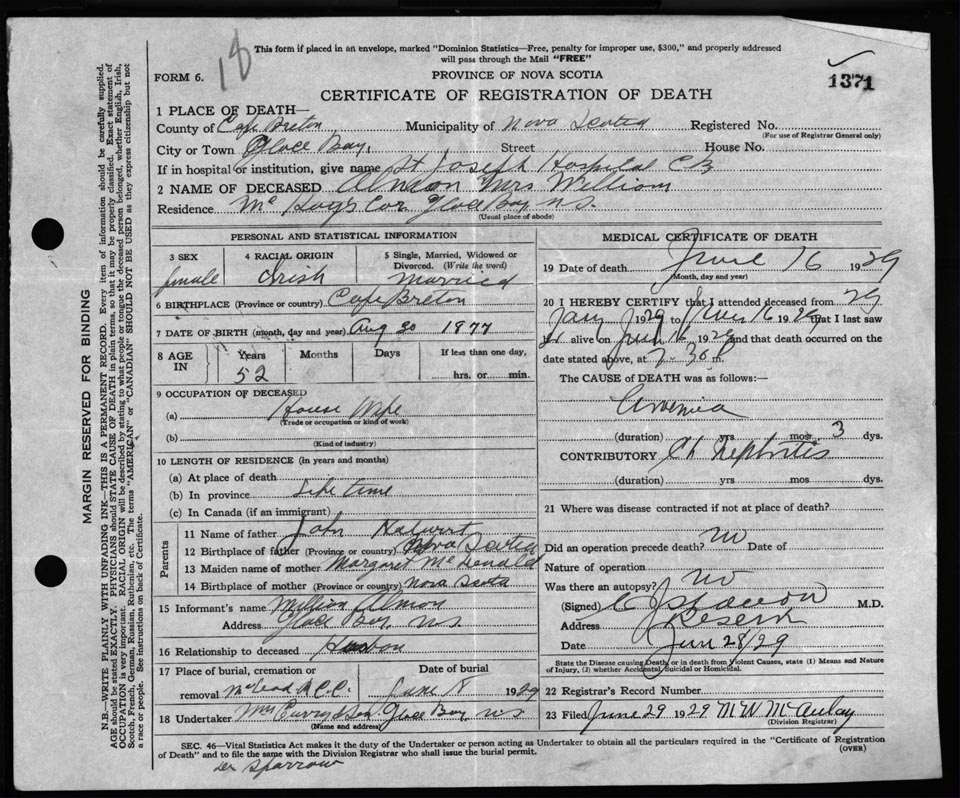 18
This form if placed in an envelope, marked "Dominion Statistics—Free, penalty for improper use, $300," and properly addressed
will pass through the Mail "FREE"
FORM 6.
PROVINCE OF NOVA SCOTIA
1371
CERTIFICATE OF REGISTRATION OF DEATH
1 PLACE OF DEATH—
County of Cape Breton Municipality of Nova Scotia Registered No.
(For use of Registrar General only)
City or Town Glace Bay, Street House No.
If in hospital or institution, give name St Joseph Hospital
2 NAME OF DECEASED Mrs William
Residence Glace Bay N.S.
(Usual place of abode)
PERSONAL AND STATISTICAL INFORMATION
3 SEX female
4 RACIAL ORIGIN Irish
5 Single, Married, Widowed or Divorced. (Write the word) Married
6 BIRTHPLACE (Province or country) Cape Breton
7 DATE OF BIRTH (month, day and year) Aug 20 1877
8 AGE IN Years 52 Months Days If less than one day, hrs. or min.
9 OCCUPATION OF DECEASED
(a) House Wife
(Trade or occupation or kind of work)
(b)
(Kind of industry)
10 LENGTH OF RESIDENCE (in years and months)
(a) At place of death
(b) In province Life time
(c) In Canada (if an immigrant)
Parents
11 Name of father John
12 Birthplace of father (Province or country) Nova Scotia
13 Maiden name of mother Margaret McDonald
14 Birthplace of mother (Province or country) Nova Scotia
15 Informant's name William Almon
Address Glace Bay N.S.
16 Relationship to deceased
17 Place of burial, cremation or removal
Date of burial
June 1929
18 Undertaker Glace Bay N.S.
(Name and address)
MEDICAL CERTIFICATE OF DEATH
19 Date of death June 16 1929
(Month, day and year)
20 I HEREBY CERTIFY that I attended deceased from
Jany 1929 to June 16 1929 that I last saw
her alive on June 16 1929 and that death occurred on the
date stated above, at 7-30 P m.
The CAUSE of DEATH was as follows:—
(duration) yrs mos 3 dys.
CONTRIBUTORY Ch Nephritis
(duration) yrs mos dys.
21 Where was disease contracted if not at place of death?
Did an operation precede death? No Date of
Nature of operation
Was there an autopsy? No
(Signed) M.D.
Address Reserve
Date Jun 28/29
State the Disease causing Death, or in death from Violent Causes, state (1) Means and Nature
of Injury, (2) whether Accidental, Suicidal or Homicidal.
22 Registrar's Record Number
23 Filed June 29 1929 M W McAulay
(Division Registrar)
SEC. 46—Vital Statistics Act makes it the duty of the Undertaker or person acting as Undertaker to obtain all the particulars required in the "Certificate of Registration
of Death" and to file the same with the Division Registrar who shall issue the burial permit.
(OVER)
Dr Sparrow
MARGIN RESERVED FOR BINDING
N.B.—WRITE PLAINLY WITH UNFADING INK—THIS IS A PERMANENT RECORD. Every item of information should be carefully supplied.
AGE should be stated EXACTLY. PHYSICIANS should STATE CAUSE OF DEATH in plain terms, so that it may be properly classified. Exact statement of
OCCUPATION is very important. RACIAL ORIGIN will be described by stating to what people or tongue the deceased person belonged, whether English, Irish,
Scotch, French, German, Russian, Ruthenian, etc. The terms "AMERICAN" or "CANADIAN" SHOULD NOT BE USED as they express citizenship but not
a race or people. See instructions on back of Certificate.